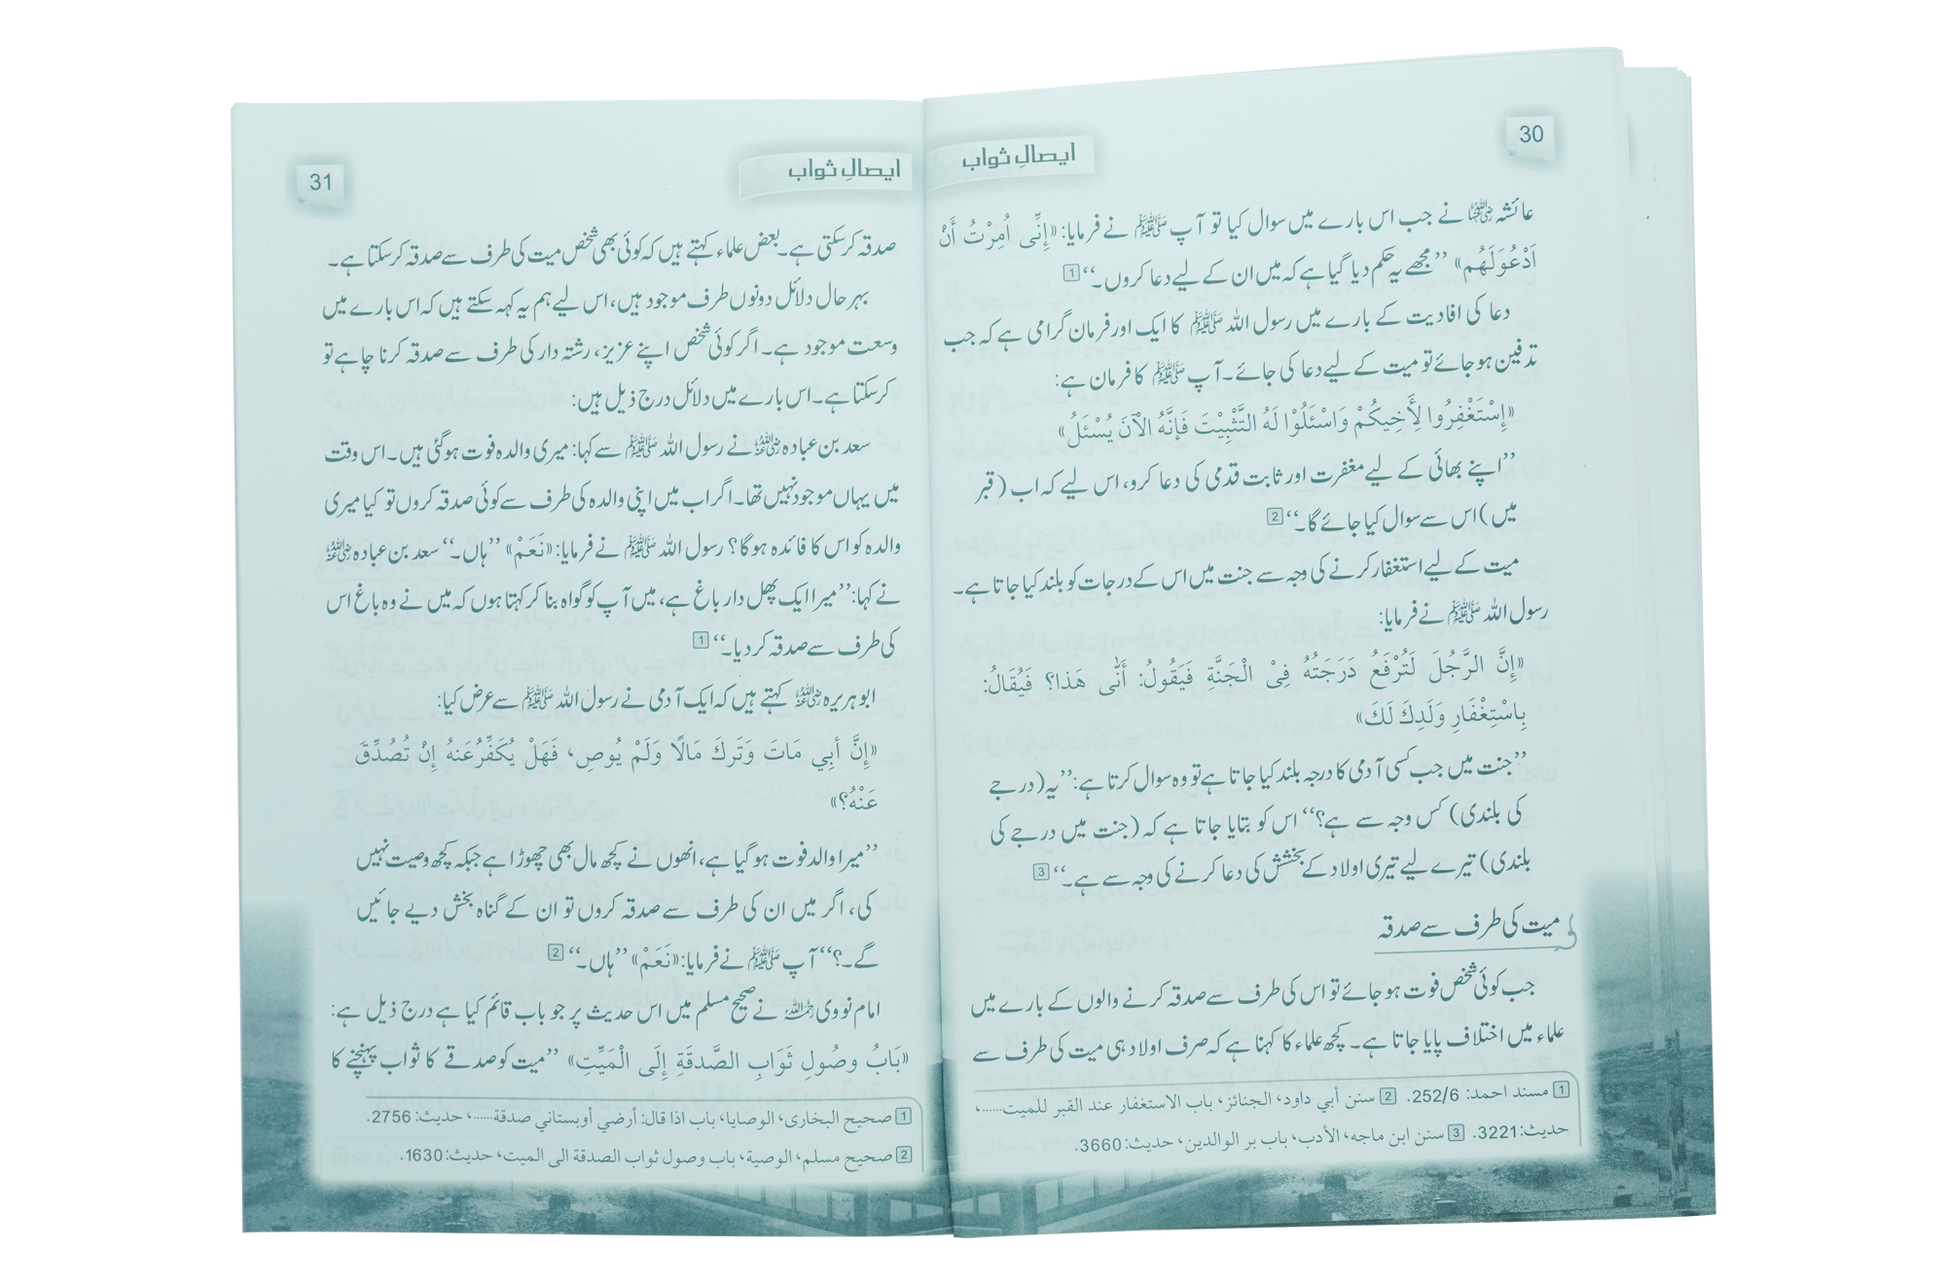 30
ایصالِ ثواب
عائشہ رضی اللہ عنہا نے جب اس بارے میں سوال کیا تو آپ ﷺ نے فرمایا: «إِنِّی اُمِرْتُ أَنْ
اَدْعُوَلَهُم» ’’مجھے یہ حکم دیا گیا ہے کہ میں ان کے لیے دعا کروں۔‘‘ 1
دعا کی افادیت کے بارے میں رسول اللہ ﷺ کا ایک اور فرمان گرامی ہے کہ جب
تدفین ہو جائے تو میت کے لیے دعا کی جائے۔ آپ ﷺ کا فرمان ہے:
«إِسْتَغْفِرُوا لِأَخِيكُمْ وَاسْئَلُوْا لَهُ التَّثْبِيْتَ فَإِنَّهُ الْآنَ يُسْئَلُ»
’’اپنے بھائی کے لیے مغفرت اور ثابت قدمی کی دعا کرو، اس لیے کہ اب (قبر
میں) اس سے سوال کیا جائے گا۔‘‘ 2
میت کے لیے استغفار کرنے کی وجہ سے جنت میں اس کے درجات کو بلند کیا جاتا ہے۔
رسول اللہ ﷺ نے فرمایا:
«إِنَّ الرَّجُلَ لَتُرْفَعُ دَرَجَتُهُ فِیْ الْجَنَّةِ فَيَقُولُ: أَنّٰى هَذا؟ فَيُقَالُ:
بِاسْتِغْفَارِ وَلَدِكَ لَكَ»
’’جنت میں جب کسی آدمی کا درجہ بلند کیا جاتا ہے تو وہ سوال کرتا ہے: ’’یہ (درجے
کی بلندی) کس وجہ سے ہے؟‘‘ اس کو بتایا جاتا ہے کہ (جنت میں درجے کی
بلندی) تیرے لیے تیری اولاد کے بخشش کی دعا کرنے کی وجہ سے ہے۔‘‘ 3
میت کی طرف سے صدقہ
جب کوئی شخص فوت ہو جائے تو اس کی طرف سے صدقہ کرنے والوں کے بارے میں
علماء میں اختلاف پایا جاتا ہے۔ کچھ علماء کا کہنا ہے کہ صرف اولاد ہی میت کی طرف سے
1 مسند احمد: 252/6. 2 سنن أبي داود، الجنائز، باب الاستغفار عند القبر للميت......،
حديث: 3221. 3 سنن ابن ماجه، الأدب، باب بر الوالدين، حديث: 3660.
ایصالِ ثواب
31
صدقہ کر سکتی ہے۔ بعض علماء کہتے ہیں کہ کوئی بھی شخص میت کی طرف سے صدقہ کر سکتا ہے۔
بہر حال دلائل دونوں طرف موجود ہیں، اس لیے ہم یہ کہہ سکتے ہیں کہ اس بارے میں
وسعت موجود ہے۔ اگر کوئی شخص اپنے عزیز، رشتہ دار کی طرف سے صدقہ کرنا چاہے تو
کر سکتا ہے۔ اس بارے میں دلائل درج ذیل ہیں:
سعد بن عبادہ رضی اللہ عنہ نے رسول اللہ ﷺ سے کہا: میری والدہ فوت ہو گئی ہیں۔ اس وقت
میں یہاں موجود نہیں تھا۔ اگر اب میں اپنی والدہ کی طرف سے کوئی صدقہ کروں تو کیا میری
والدہ کو اس کا فائدہ ہوگا؟ رسول اللہ ﷺ نے فرمایا: «نَعَمْ» ’’ہاں۔‘‘ سعد بن عبادہ رضی اللہ عنہ
نے کہا: ’’میرا ایک پھل دار باغ ہے، میں آپ کو گواہ بنا کر کہتا ہوں کہ میں نے وہ باغ اس
کی طرف سے صدقہ کر دیا۔‘‘ 1
ابو ہریرہ رضی اللہ عنہ کہتے ہیں کہ ایک آدمی نے رسول اللہ ﷺ سے عرض کیا:
«إِنَّ أَبِي مَاتَ وَتَرَكَ مَالًا وَلَمْ يُوصِ، فَهَلْ يُكَفِّرُعَنهُ إِنْ تُصُدِّقَ
عَنْهُ؟»
’’میرا والد فوت ہو گیا ہے، انھوں نے کچھ مال بھی چھوڑا ہے جبکہ کچھ وصیت نہیں
کی، اگر میں ان کی طرف سے صدقہ کروں تو ان کے گناہ بخش دیے جائیں
گے۔؟‘‘ آپ ﷺ نے فرمایا: «نَعَمْ» ’’ہاں۔‘‘ 2
امام نووی رحمہ اللہ نے صحیح مسلم میں اس حدیث پر جو باب قائم کیا ہے درج ذیل ہے:
«بَابُ وصُولِ ثَوَابِ الصَّدقَةِ إِلَى الْمَيِّتِ» ’’میت کو صدقے کا ثواب پہنچنے کا
1 صحیح البخاری، الوصایا، باب اذا قال: أرضي أوبستاني صدقة......، حدیث: 2756.
2 صحیح مسلم، الوصیة، باب وصول ثواب الصدقة الی المیت، حدیث: 1630.